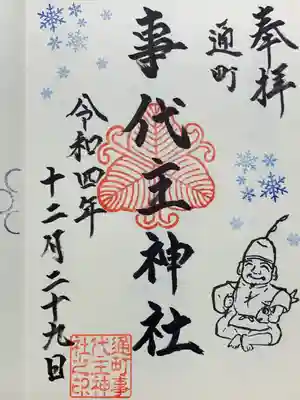 奉拝
通町
事代主神社
令和四年
十二月二十九日
通町事
代主神
社之印